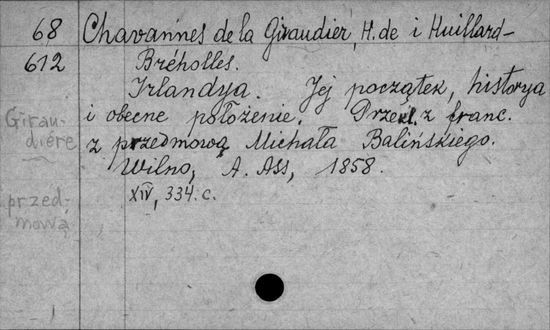 68 Chavannes de la Giraudier, H. de i Huillard-
612 Bréholles.
Irlandya. Jej początek, historya
i obecne położenie. Przekł. z franc.
z przedmową Michała Balińskiego.
Wilno, A. Ass, 1858.
XIV, 334 c.
Girau-
diére
przed-
mową